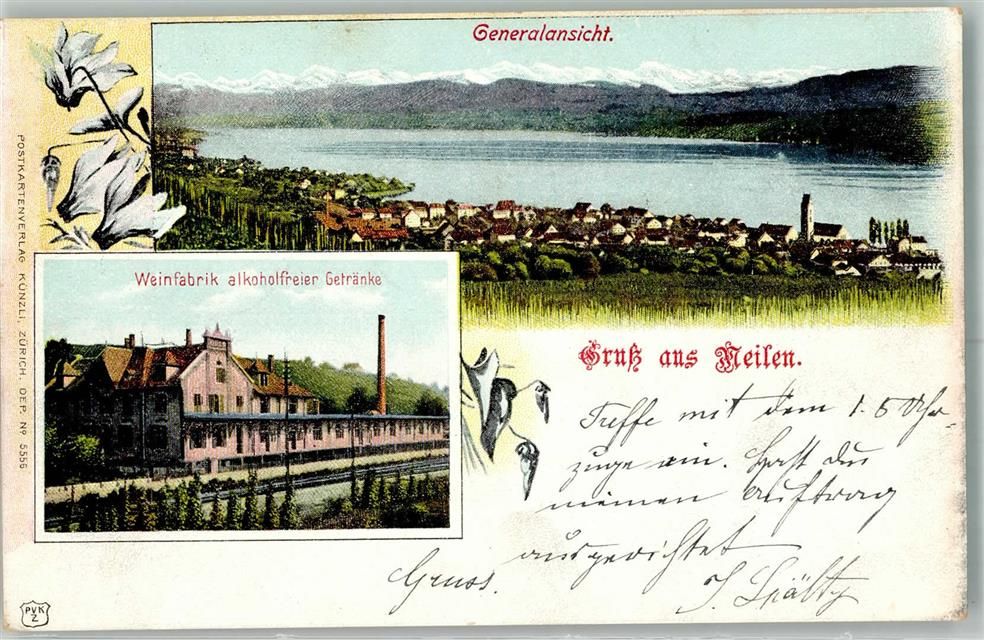 Generalansicht.
Weinfabrik alkoholfreier Getränke
POSTKARTENVERLAG KÜNZLI, ZÜRICH. DEP. Nº 5556
Gruß aus Meilen.
Treffe mit dem 1.5 Uhr
zuge ein. Hast du
meinen Auftrag
ausgerichtet
Gruss.
J. Spälty
PVK
Z